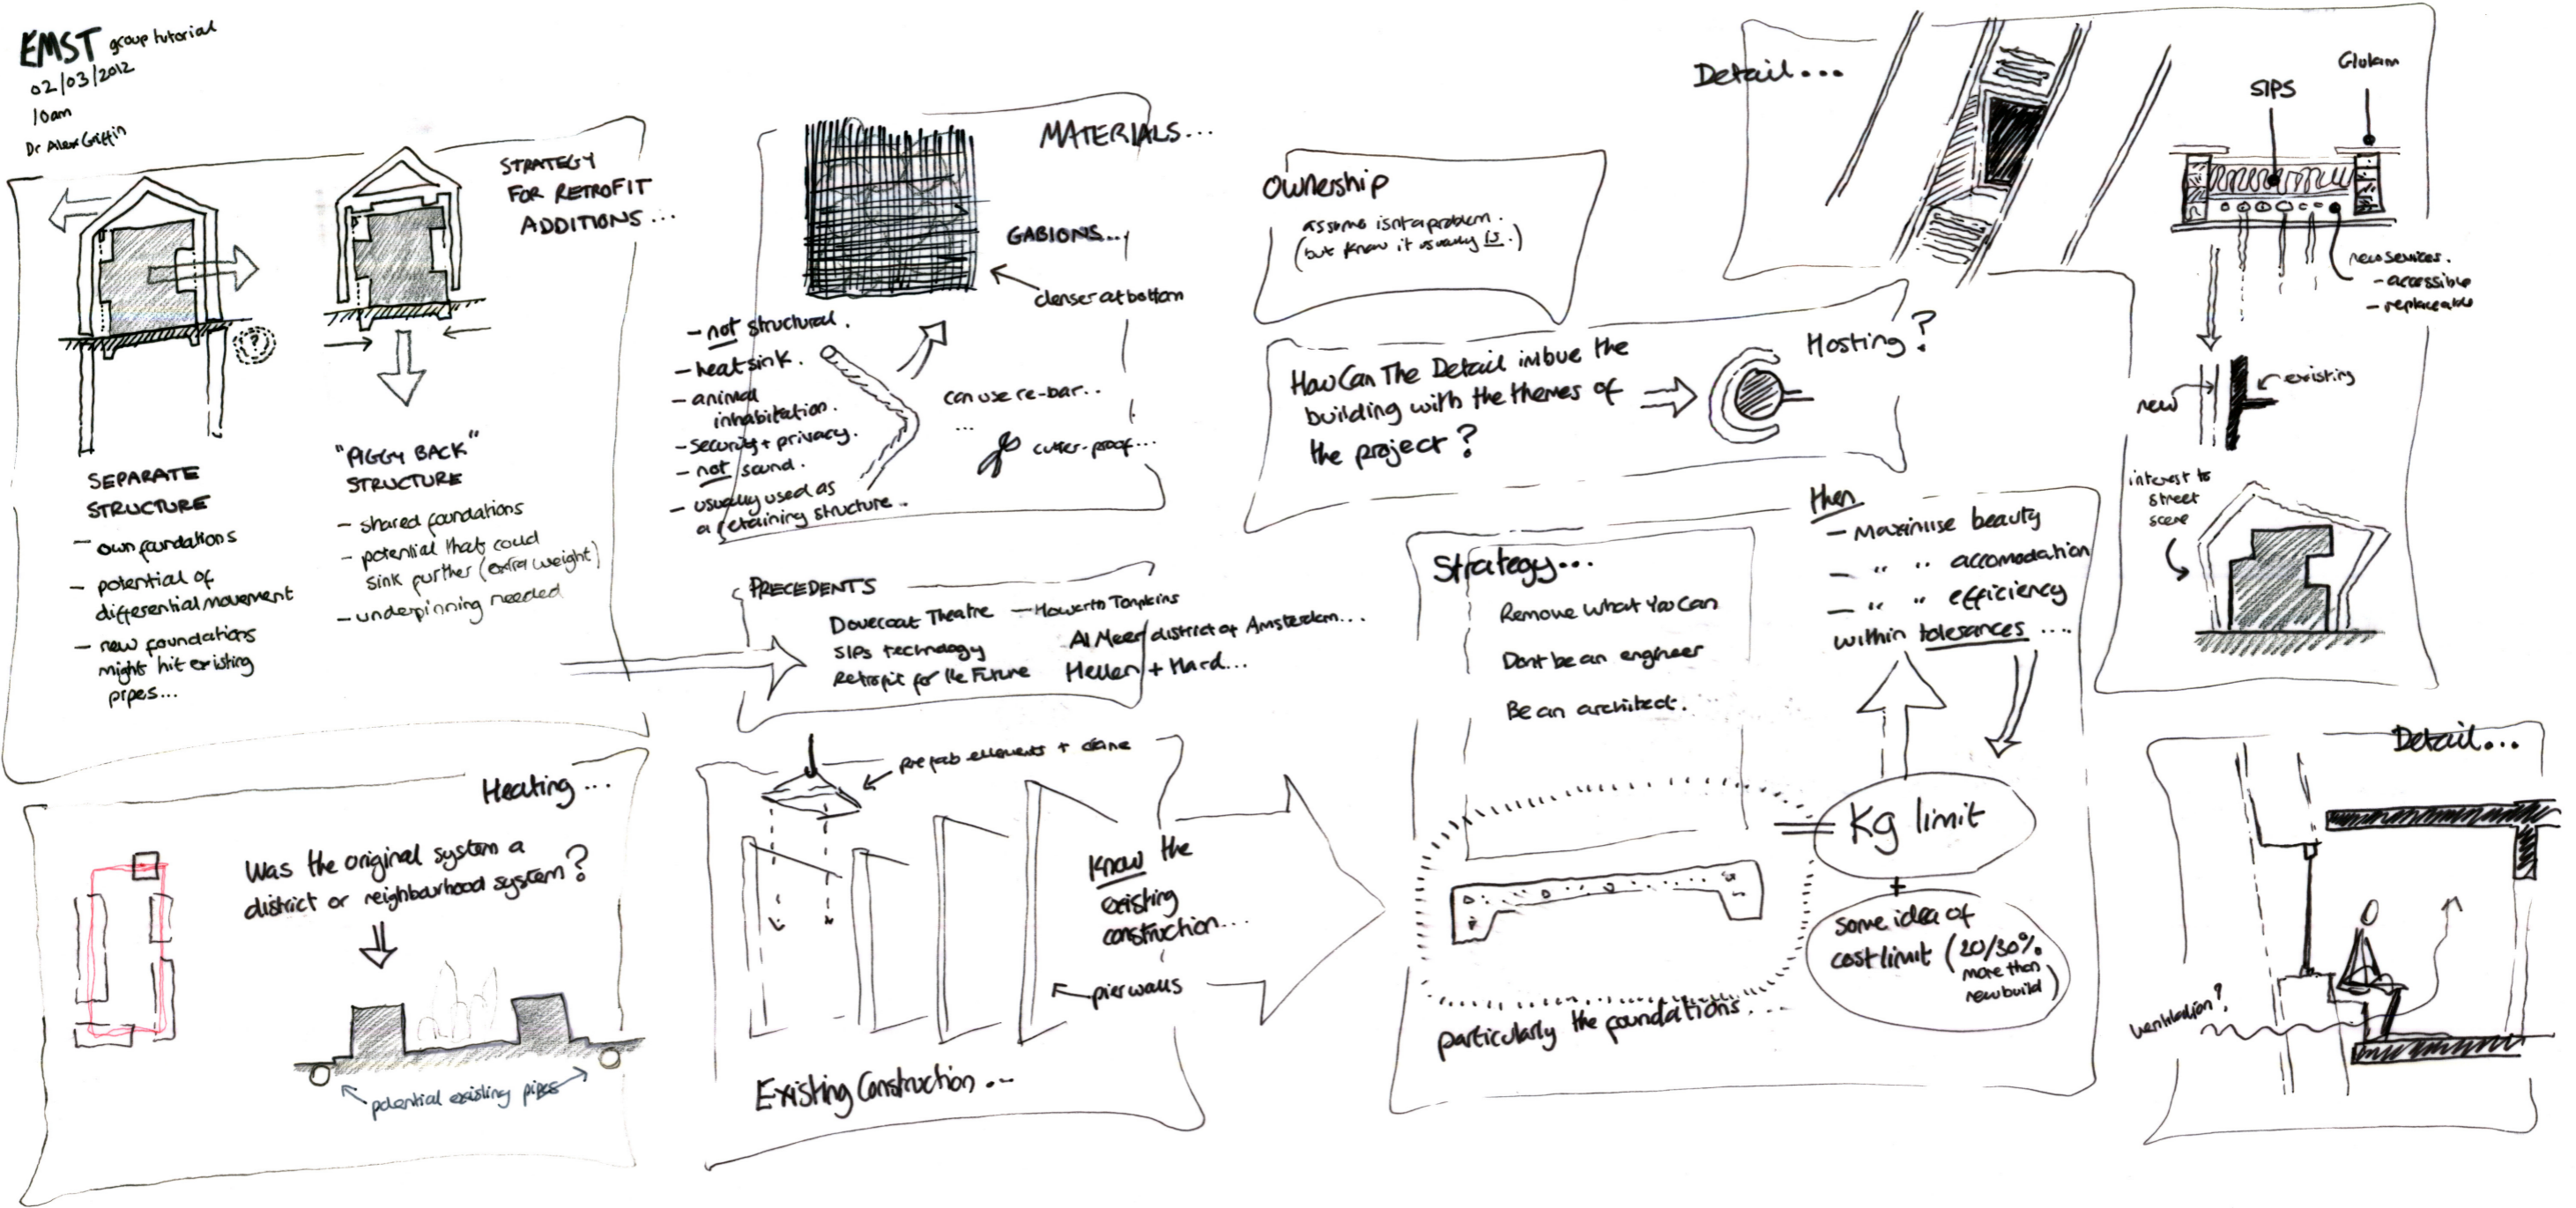 EMST group tutorial
02/03/2012
10am
Dr Alex Griffin
STRATEGY
FOR RETROFIT
ADDITIONS...
?
SEPARATE
STRUCTURE
- own foundations
- potential of
differential movement
- new foundations
might hit existing
pipes...
"PIGGY BACK"
STRUCTURE
- shared foundations
- potential that could
sink further (extra weight)
- underpinning needed
MATERIALS...
GABIONS...
denser at bottom
- not structural.
- heat sink.
- animal
inhabitation.
- security + privacy.
- not sound.
- usually used as
a retaining structure.
can use re-bar...
...
cutter-proof...
PRECEDENTS
Dovecoat Theatre - Howerth Tompkins
SIPs technology
Retrofit for the Future
Al Meer district of Amsterdam...
Hellen + Hard...
Heating...
Was the original system a
district or neighbourhood system?
potential existing pipes
prefab elements + crane
Know the
existing
construction...
pier walls
Existing Construction...
Ownership
assume isnt a problem.
(but know it usually is.)
How Can The Detail imbue the
building with the themes of
the project?
Hosting?
Strategy...
Remove what You Can
Dont be an engineer
Be an architect.
then
- Maximise beauty
- " " accomodation
- " " efficiency
within tolerances....
Kg limit
+
some idea of
cost limit (20/30%
more than
new build)
particularly the foundations....
Detail...
SIPS
Glulam
new services.
- accessible
- replaceable
new
existing
interest to
street
scene
Detail...
ventilation?